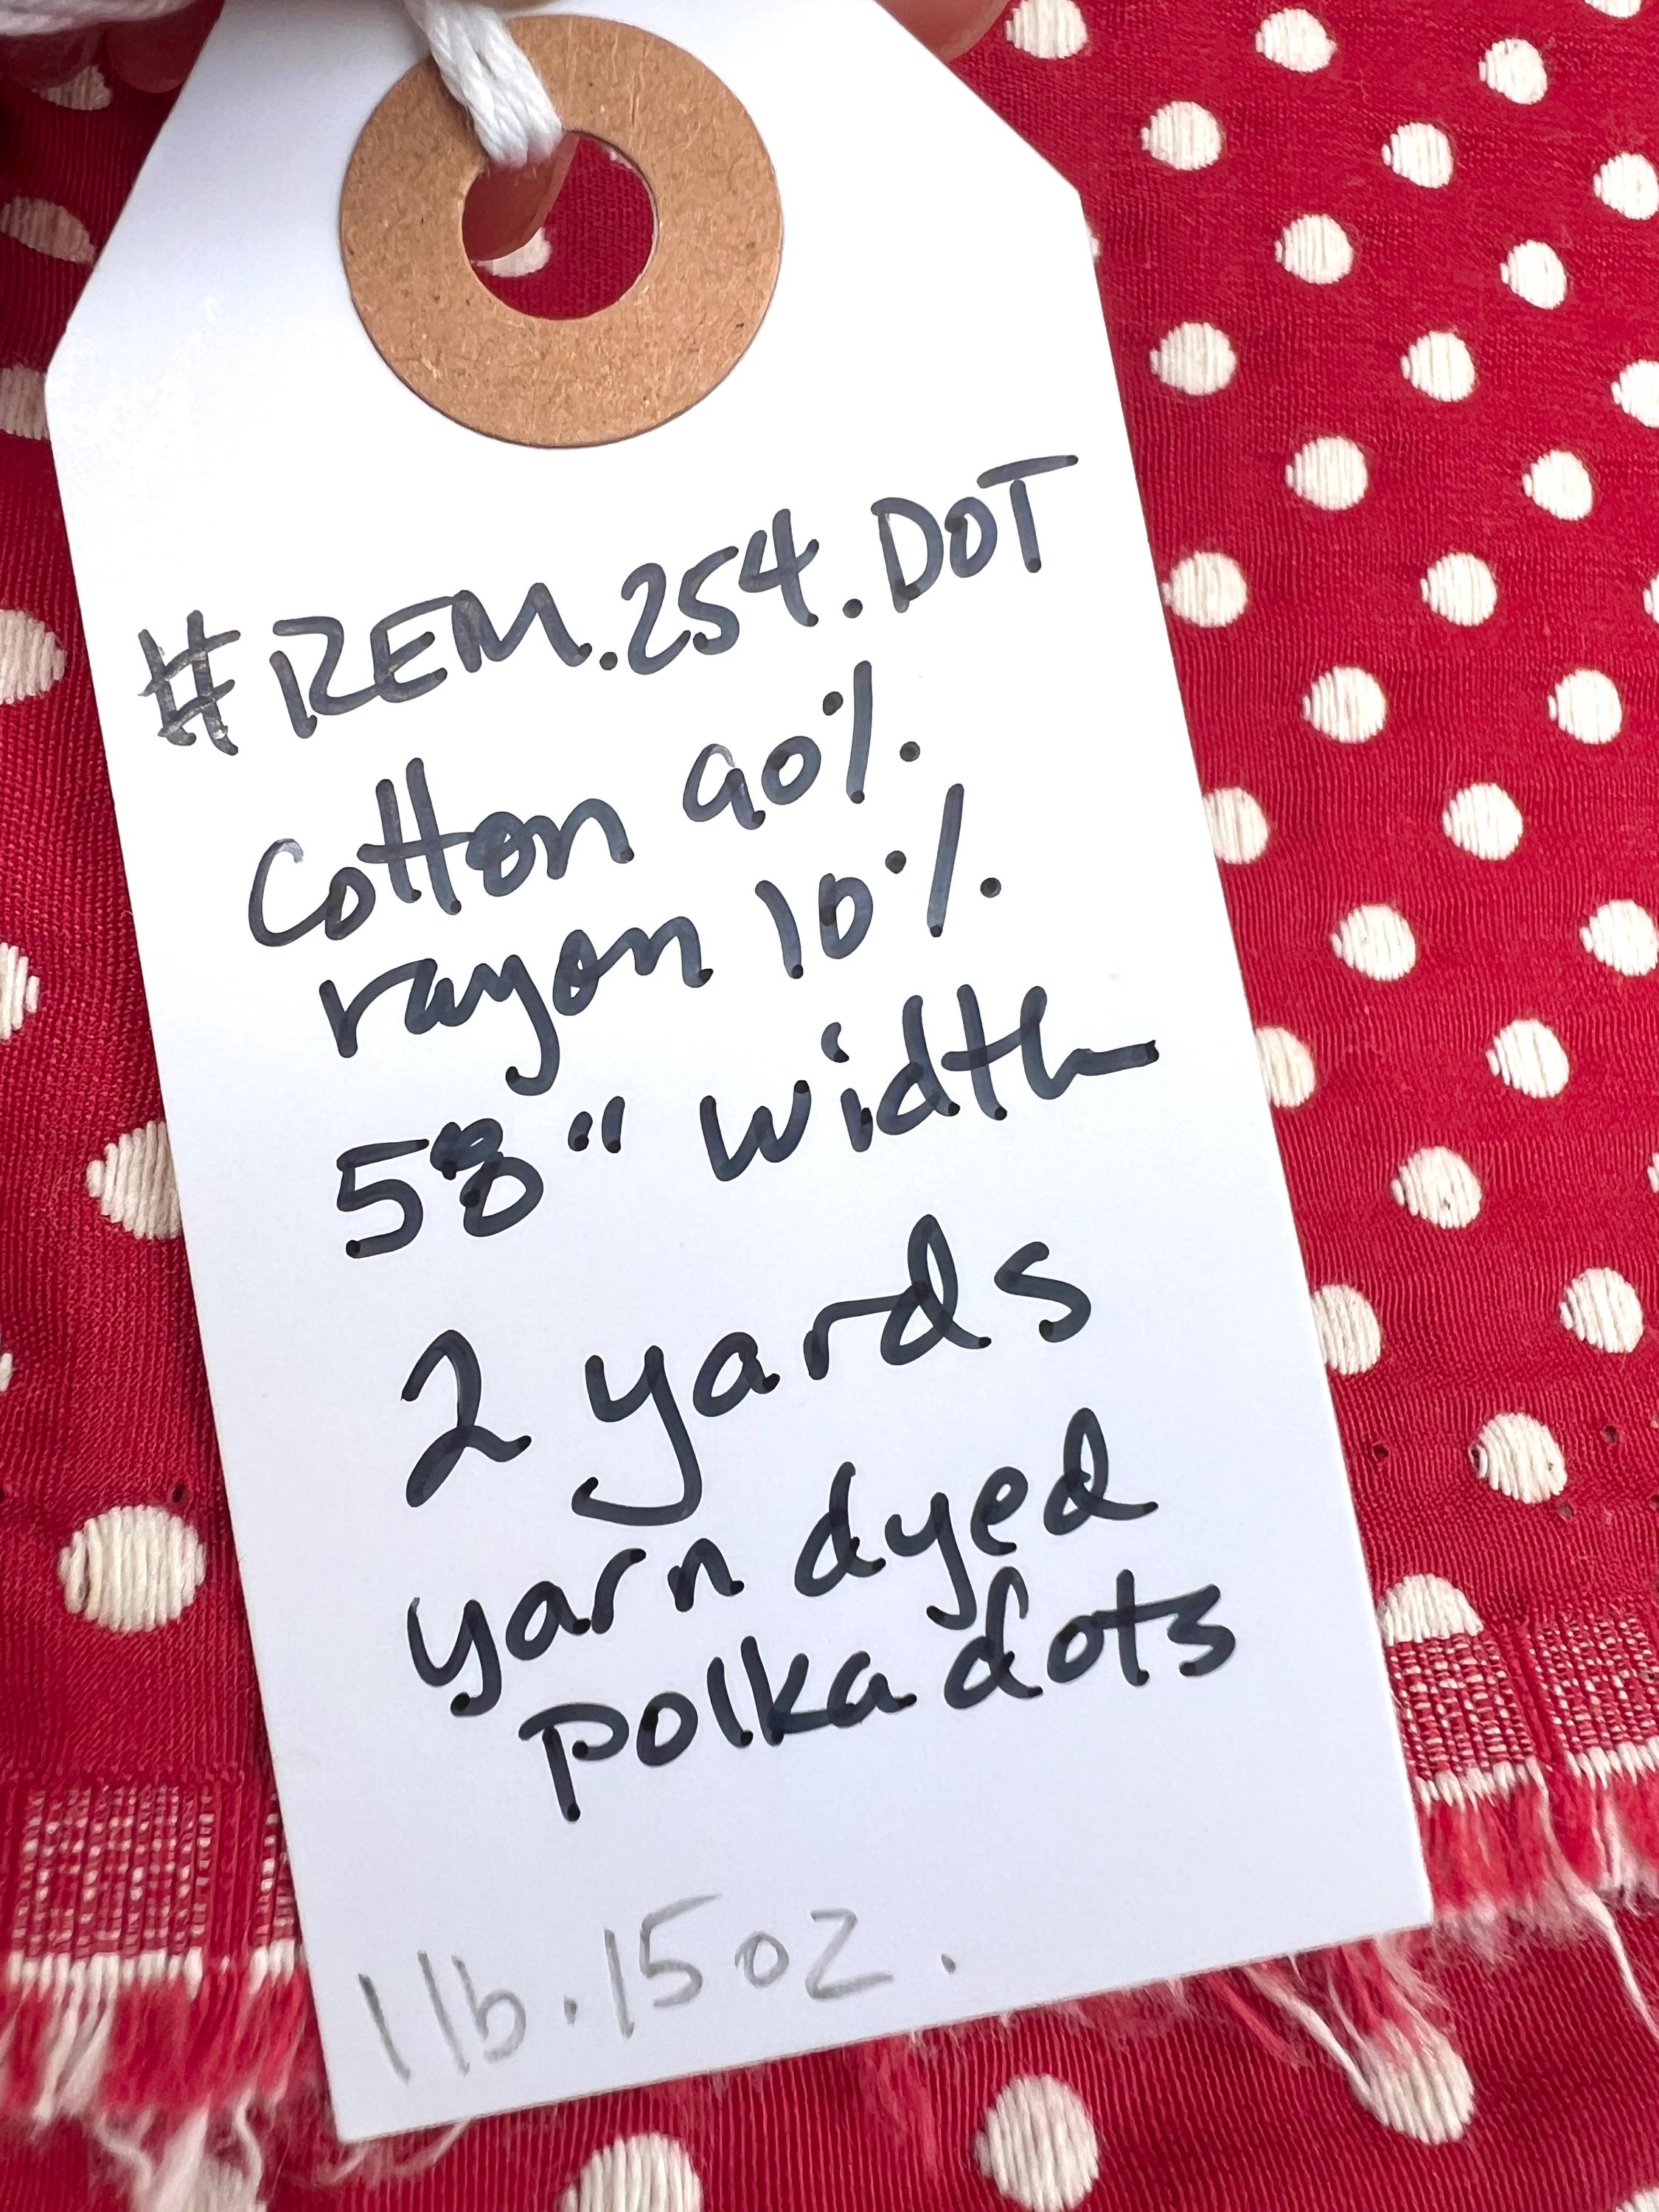 #REM.254.DOT
Cotton 90%
rayon 10%
58" width
2 yards
yarn dyed
polka dots
1 lb. 15 oz.